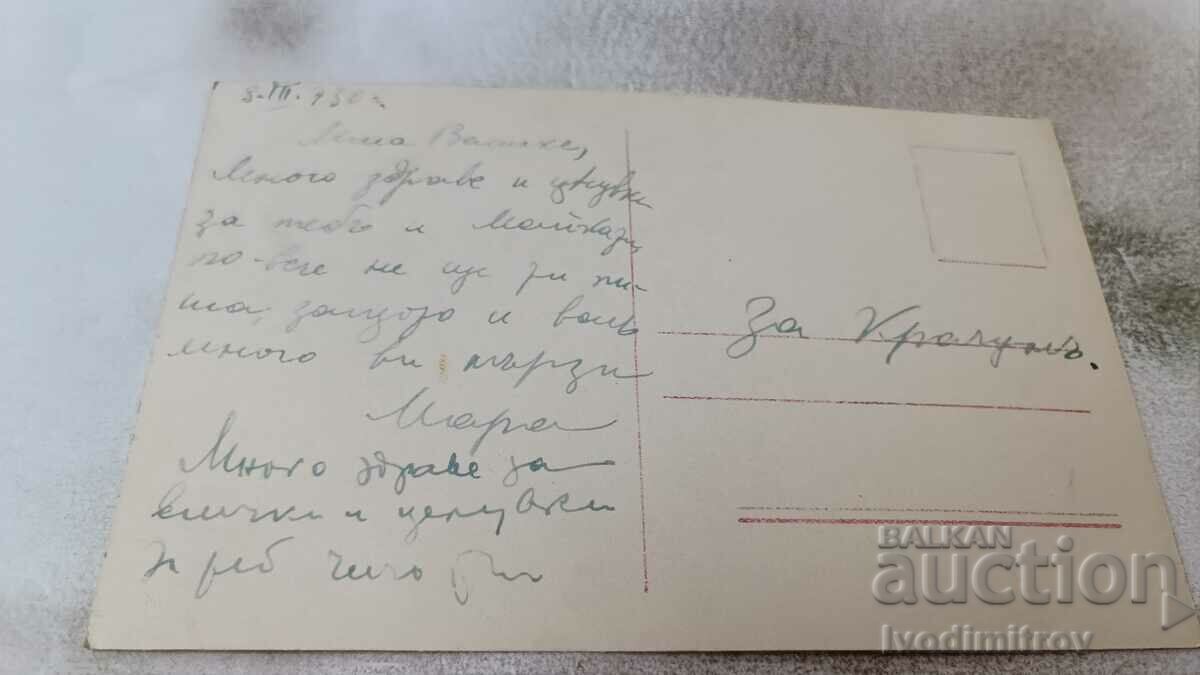 8.III. 930 г.
Мила Вальке,
Много здраве и целувки
за тебе и Майка ти
по-вече не ще ти пи-
ша, защото и вас
много ви мързи
Мара
Много здраве за
всички и целувки
за теб чичо
За Крачунъ.
BALKAN
auction
Ivodimitrov